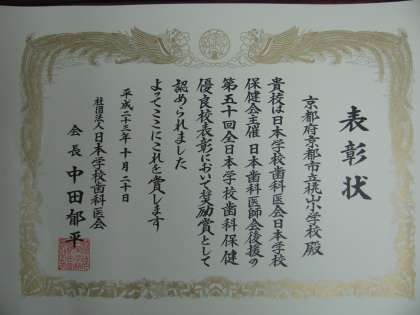 表彰状
京都府京都市立桃山小学校 殿
貴校は日本学校歯科医会日本学校
保健会主催 日本歯科医師会後援の
第五十回全日本学校歯科保健
優良校表彰において奨励賞として
認められました
よってここにこれを賞します
平成二十三年十月二十日
社団法人日本学校歯科医会
会長 中田郁平